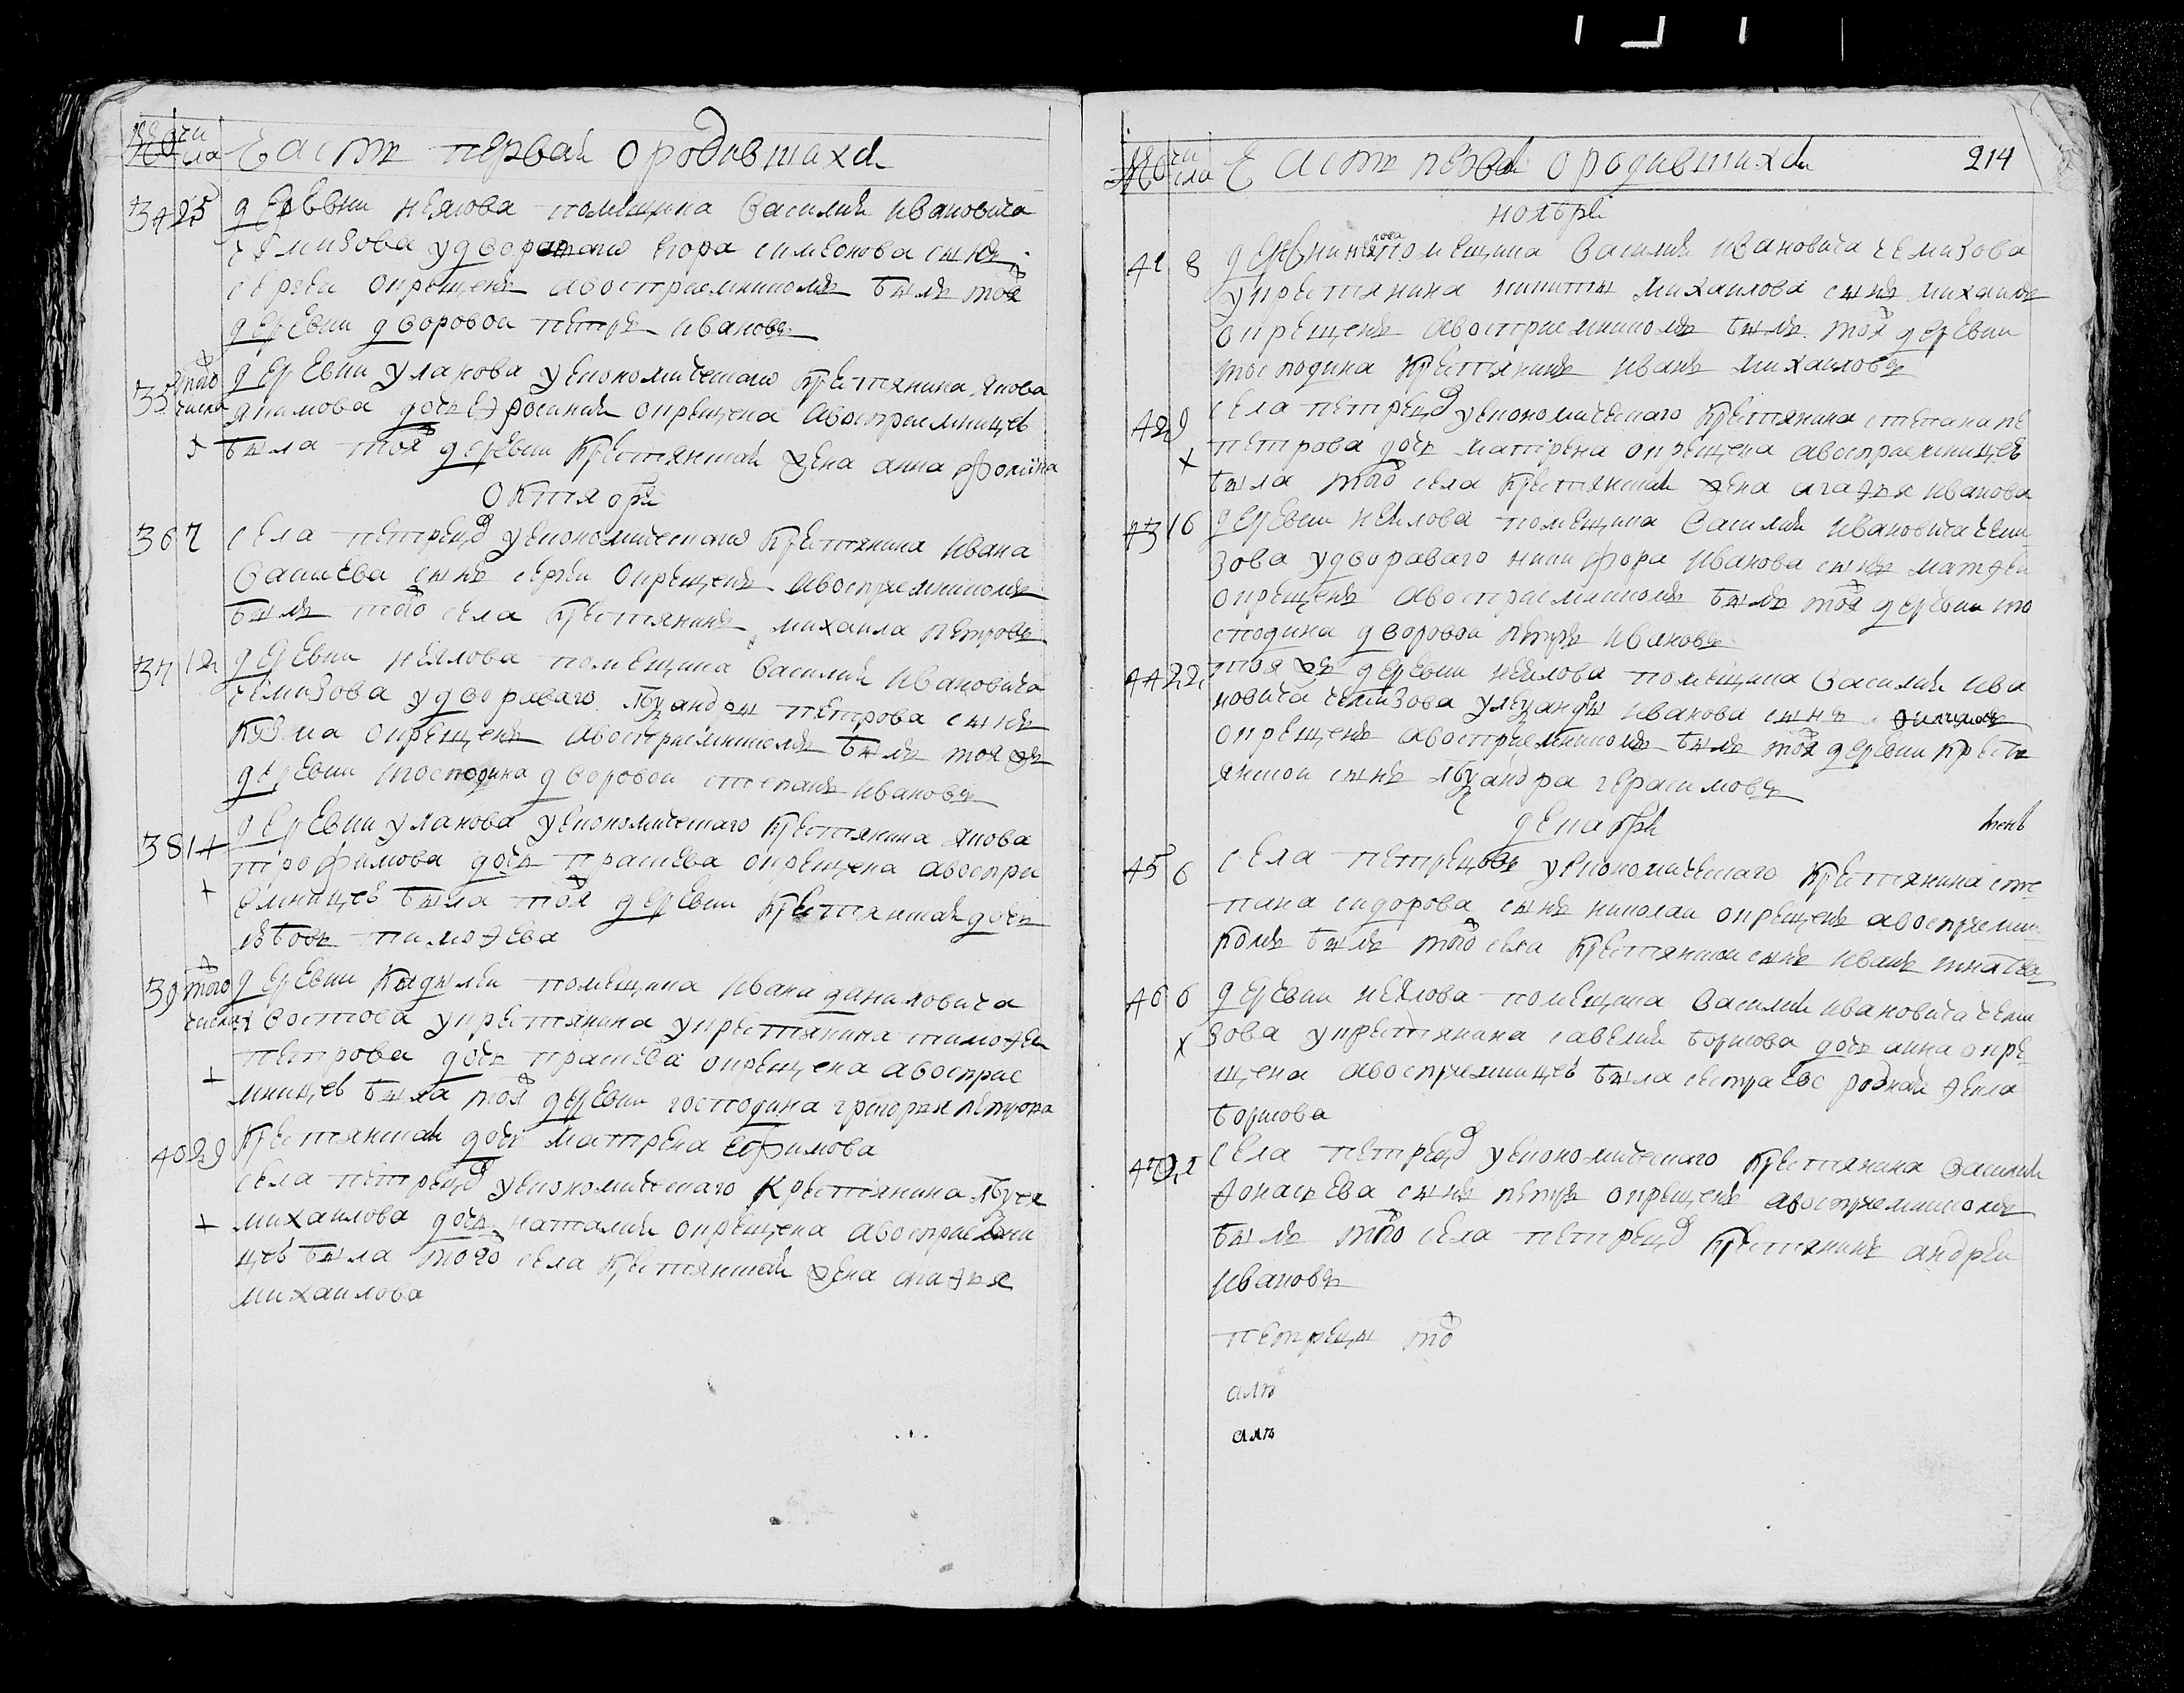 № чи
сла Часть первая о родившихся
34 25 деревни Неялова помещика Василия Ивановича
чемизова у двороваго Егора симеонова сынъ
сергеи окрещенъ а восприемникомъ былъ тояж
деревни дворовои петръ Ивановъ
35 того ж числа деревни уланова у економическаго крестянина якова
якимова дочь Ефросиния окрещена а восприемницею
была тояж деревни крестянская жена анна фокина
октября
36 7 села петрецов у економическаго крестянина Ивана
Василева сынъ сергеи окрещенъ а восприемникомъ
былъ того ж села крестянинъ михаила петровъ
37 12 деревни неялова помещика Василия Ивановича
чемизова у двороваго алеѯандры петрова сынъ
козма окрещенъ а восприемникомъ былъ тоя жъ
деревни господина дворовои степанъ Ивановъ
38 14 деревни уланова у економическаго крестянина якова
трофимова дочь прасковя окрещена а воспри
емницею была тояж деревни крестянская дочь
любовь тимоѳеева
39 того ж числа деревни помещика Ивана даниловича
хвостова у крестянина у крестянина тимоѳея
петрова дочь прасковя окрещена а восприе
мницею была тояж деревни господина григорья петрова
крестянская дочь матрена Ефимова
40 29 села петрецов у економическаго крестянина алеѯея
михаилова дочь наталия окрещена а восприемни
цею была того ж села крестянская жена агаѳья
михаилова
№ чи
сла Часть первая о родившихся 214
ноября
41 8 деревни неялова помещика Василия Ивановича чемизова
у крестянина никиты михаилова сынъ михаилъ
окрещенъ а восприемникомъ былъ тояж деревни
господина крестянинъ Иванъ михаиловъ
42 9 села петрецов у економическаго крестянина степана пе
петрова дочь матрена окрещена а восприемницею
была того ж села крестянская жена агаѳья Иванова
43 16 деревни неялова помещика Василия Ивановича чеми
зова у двороваго никифора Иванова сынъ матѳеи
окрещенъ а восприемникомъ былъ тояж деревни го
сподина дворовои петръ Ивановъ
44 22 тоя жъ деревни неялова помещика Василия Ива
новича чемизова у алеѯандры Иванова сынъ
окрещенъ а восприемникомъ былъ тояж деревни кресть
янскои сынъ алеѯандра герасимовъ
декабря
45 6 села петрецовъ у економическаго крестянина сте
пана сидорова сынъ николаи окрещенъ а восприемни
комъ былъ того ж села крестянскои сынъ Иванъ
46 6 деревни неялова помещика Василия Ивановича чеми
зова у крестянина савелия борисова дочь анна окре
щена а восприемницею была сестра Ево родная ѳекла
борисова
47 21 села петрецов у економическаго крестянина Василия
аѳонасьева сынъ петръ окрещенъ а восприемникомъ
былъ того ж села петрецов крестянинъ андреи
Ивановъ
петрецы то ж